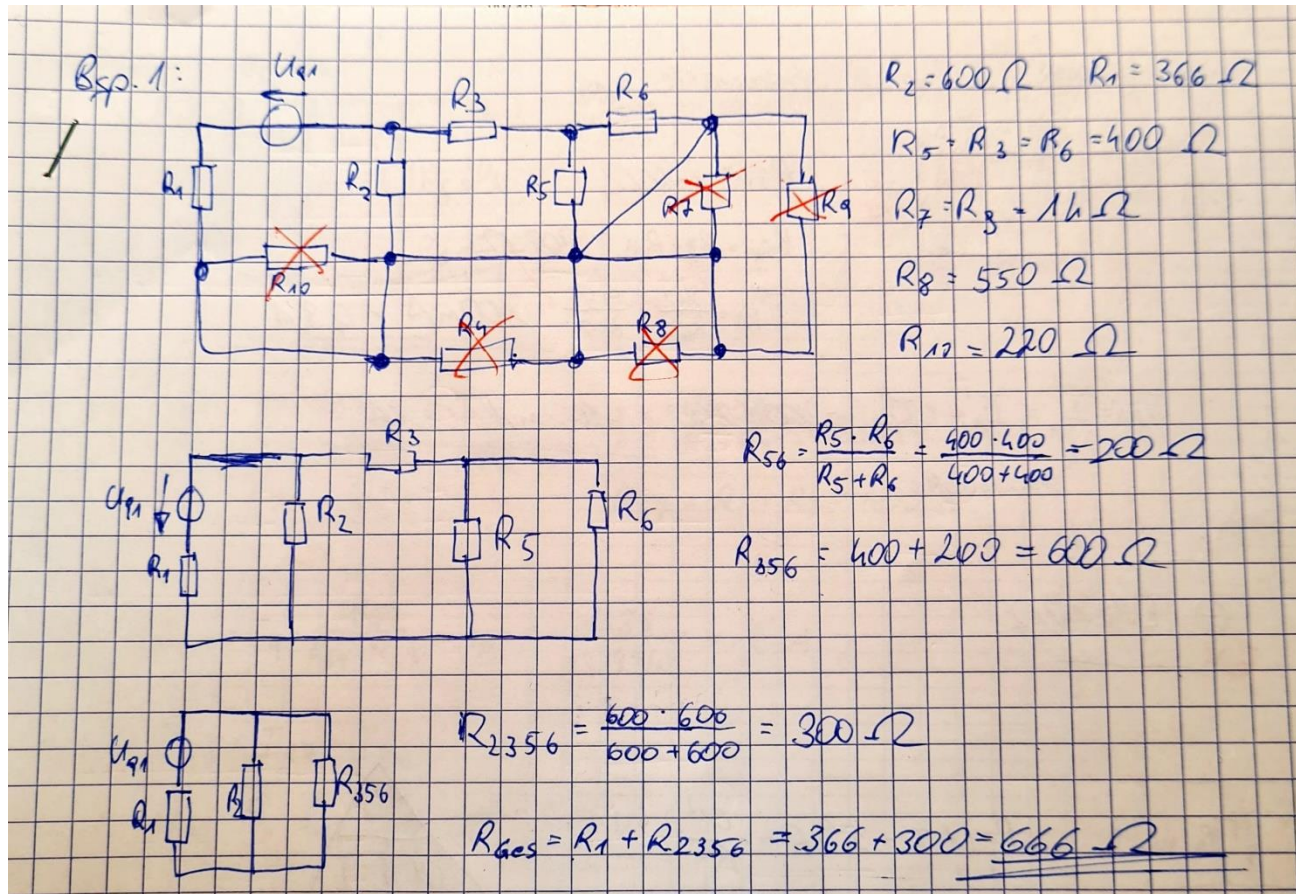 Bsp. 1:
Uq1
R3
R6
R1
R2
R5
R7
R9
R10
R4
R8
R2 = 600 Ω R1 = 366 Ω
R5 = R3 = R6 = 400 Ω
R7 = R9 = 1k Ω
R8 = 550 Ω
R10 = 220 Ω
R3
Uq1
R2
R5
R6
R1
R56 = R5 · R6 / R5 + R6 = 400 · 400 / 400 + 400 = 200 Ω
R356 = 400 + 200 = 600 Ω
Uq1
R1
R2
R356
R2356 = 600 · 600 / 600 + 600 = 300 Ω
RGes = R1 + R2356 = 366 + 300 = 666 Ω